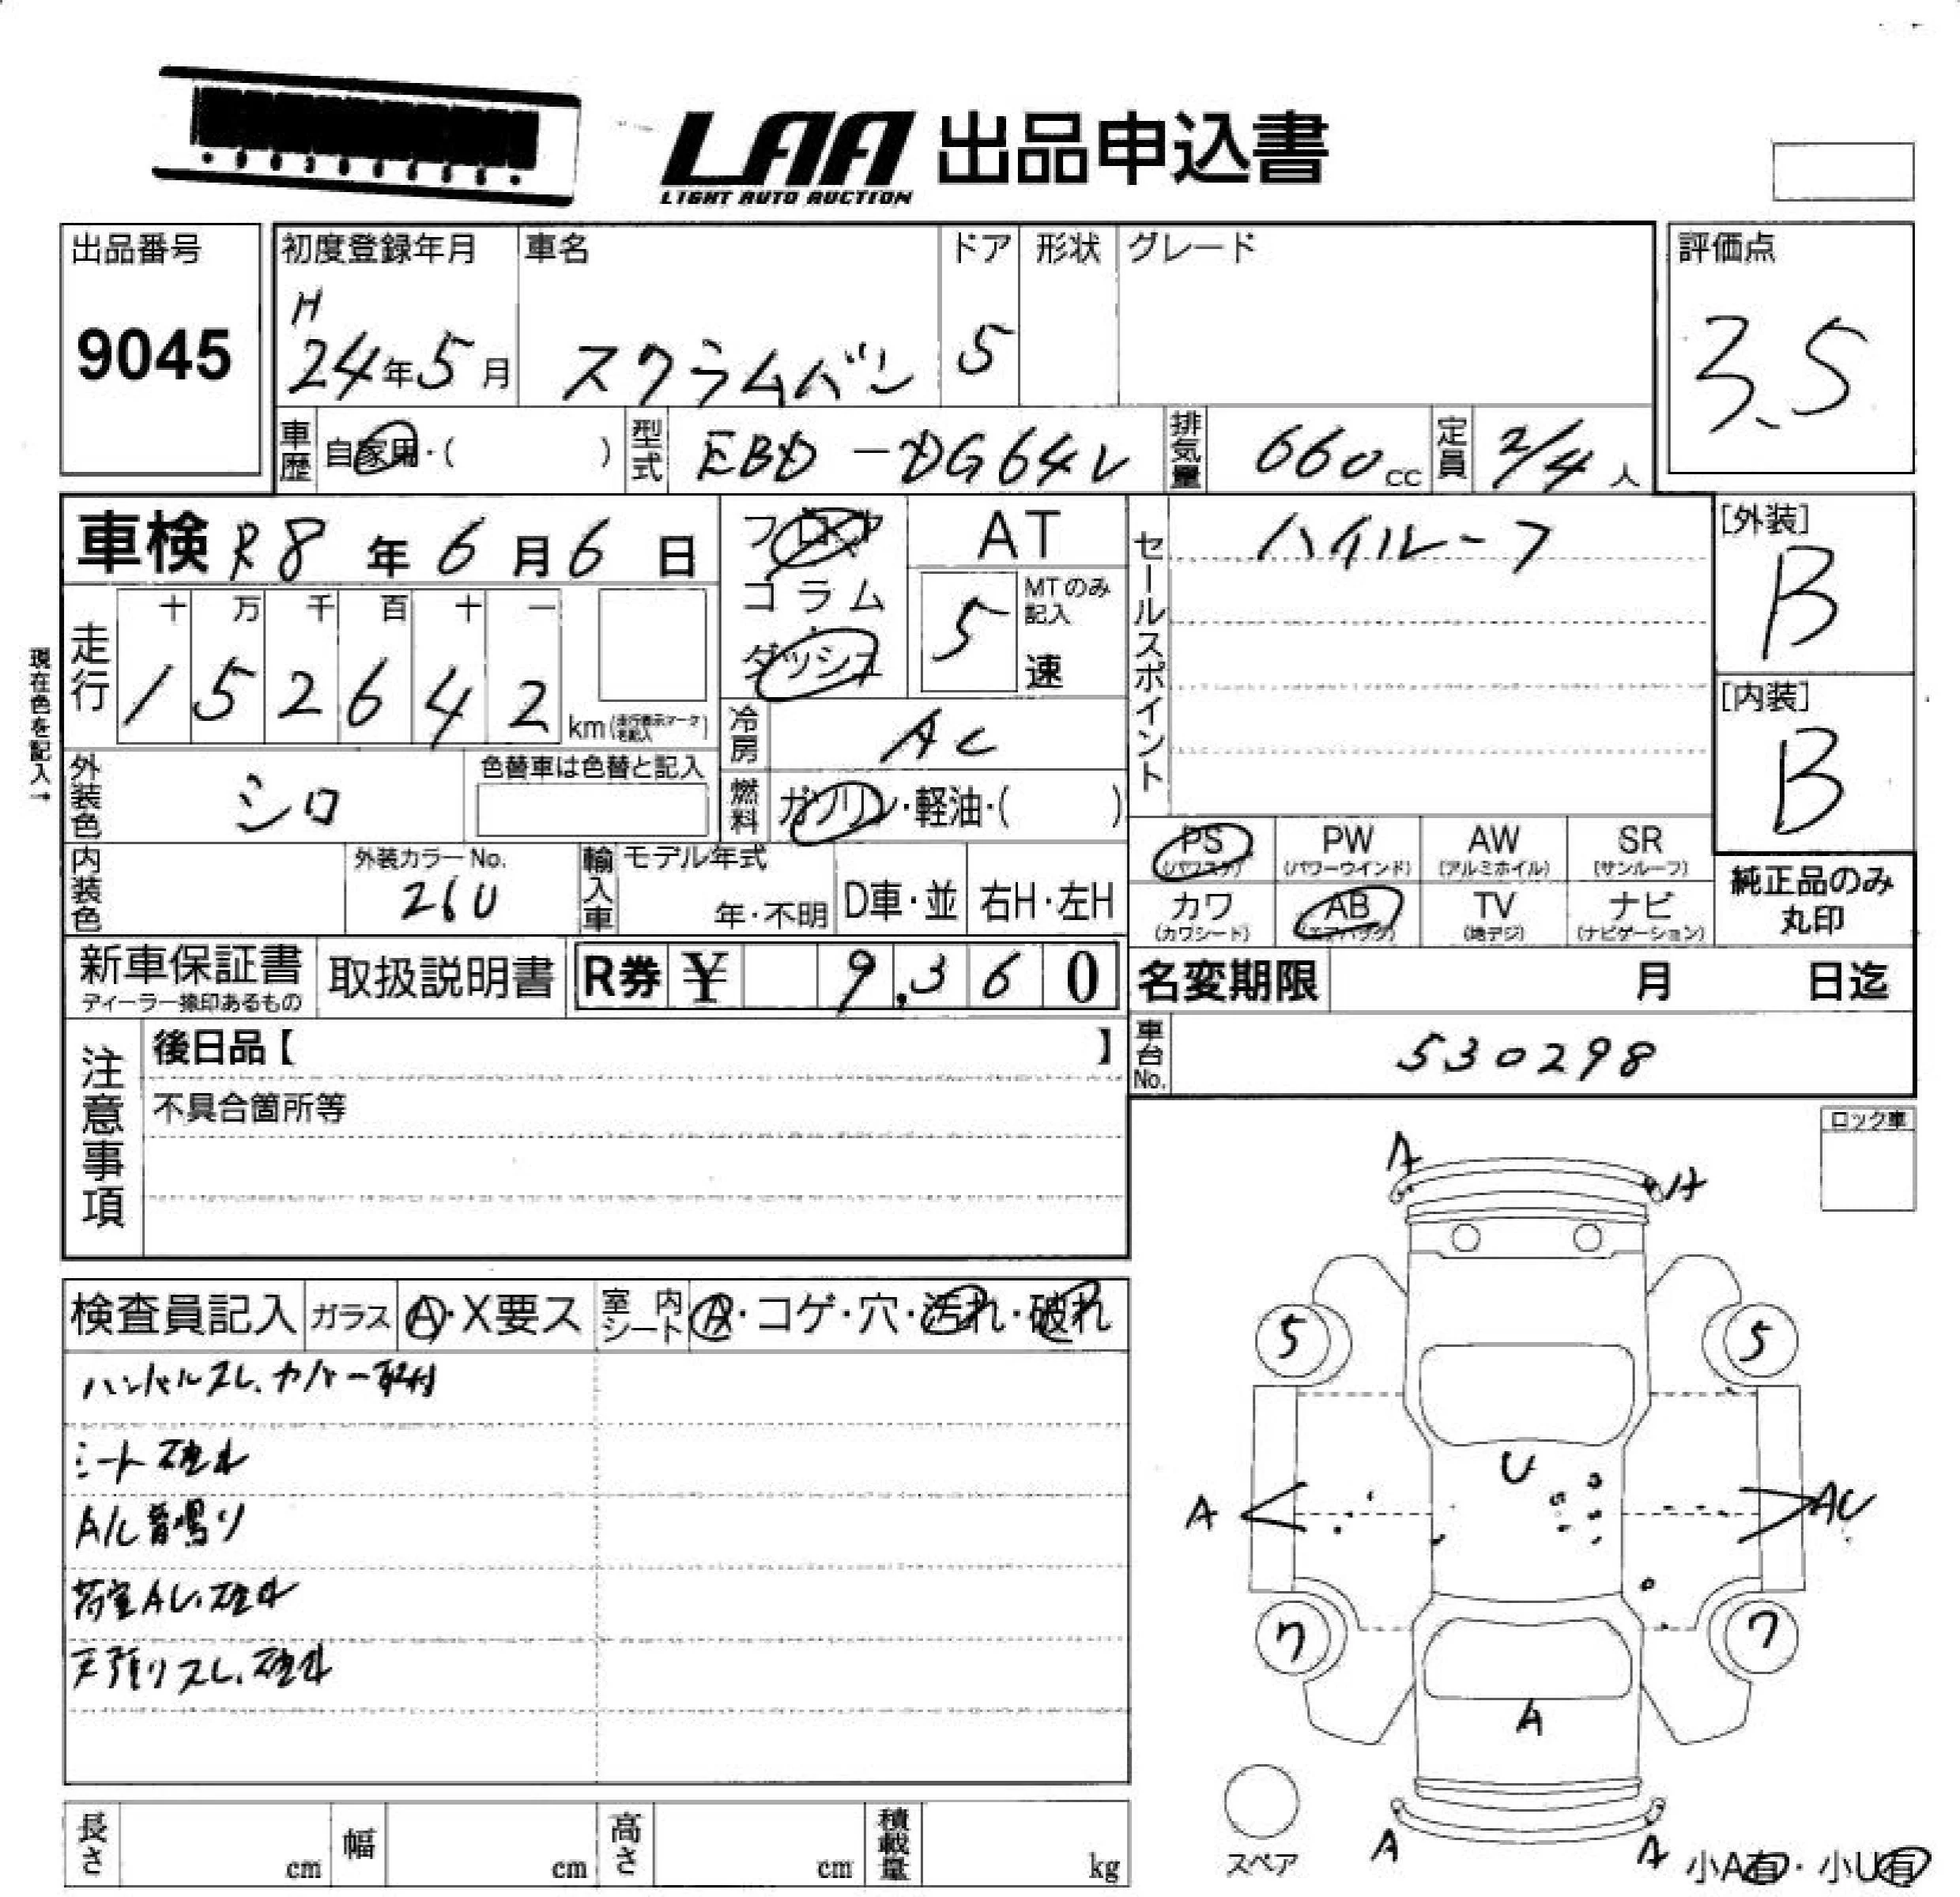 LAA 出品申込書
LIGHT AUTO AUCTION
出品番号
9045
初度登録年月
H
24年5月
車名
スクラムバン
ドア
5
形状
グレード
評価点
3.5
車歴
自家用・( )
型式
EBD-DG64V
排気量
660cc
定員
2/4人
車検 R8年6月6日
フロア
コラム
ダッシュ
AT
MTのみ記入
5速
セールスポイント
ハイルーフ
[外装]
B
[内装]
B
現在色を記入→
走行
十 万 千 百 十 一
1 5 2 6 4 2
km
冷房
AC
外装色
シロ
色替車は色替と記入
燃料
ガソリン・軽油・( )
PS PW AW SR
(パワステ) (パワーウインド) (アルミホイル) (サンルーフ)
カワ AB TV ナビ
(カワシート) (エアバッグ) (地デジ) (ナビゲーション)
純正品のみ
丸印
内装色
外装カラーNo.
26U
輸入車
モデル年式
年・不明
D車・並
右H・左H
新車保証書
取扱説明書
R券 ¥ 9,360
名変期限 月 日迄
車台No.
530298
注意事項
後日品【 】
不具合箇所等
ロック車
検査員記入
ガラス
A・X要ス
室内シート
A・コゲ・穴・汚れ・破れ
ハンドルスレ、カバー取付
シート破れ
A/C音鳴り
荷室AU、破れ
天張りスレ、破れ
A A
5 5
U
A AU
7 7
A
A A
スペア
小A有・小U有
長さ cm
幅 cm
高さ cm
積載量 kg